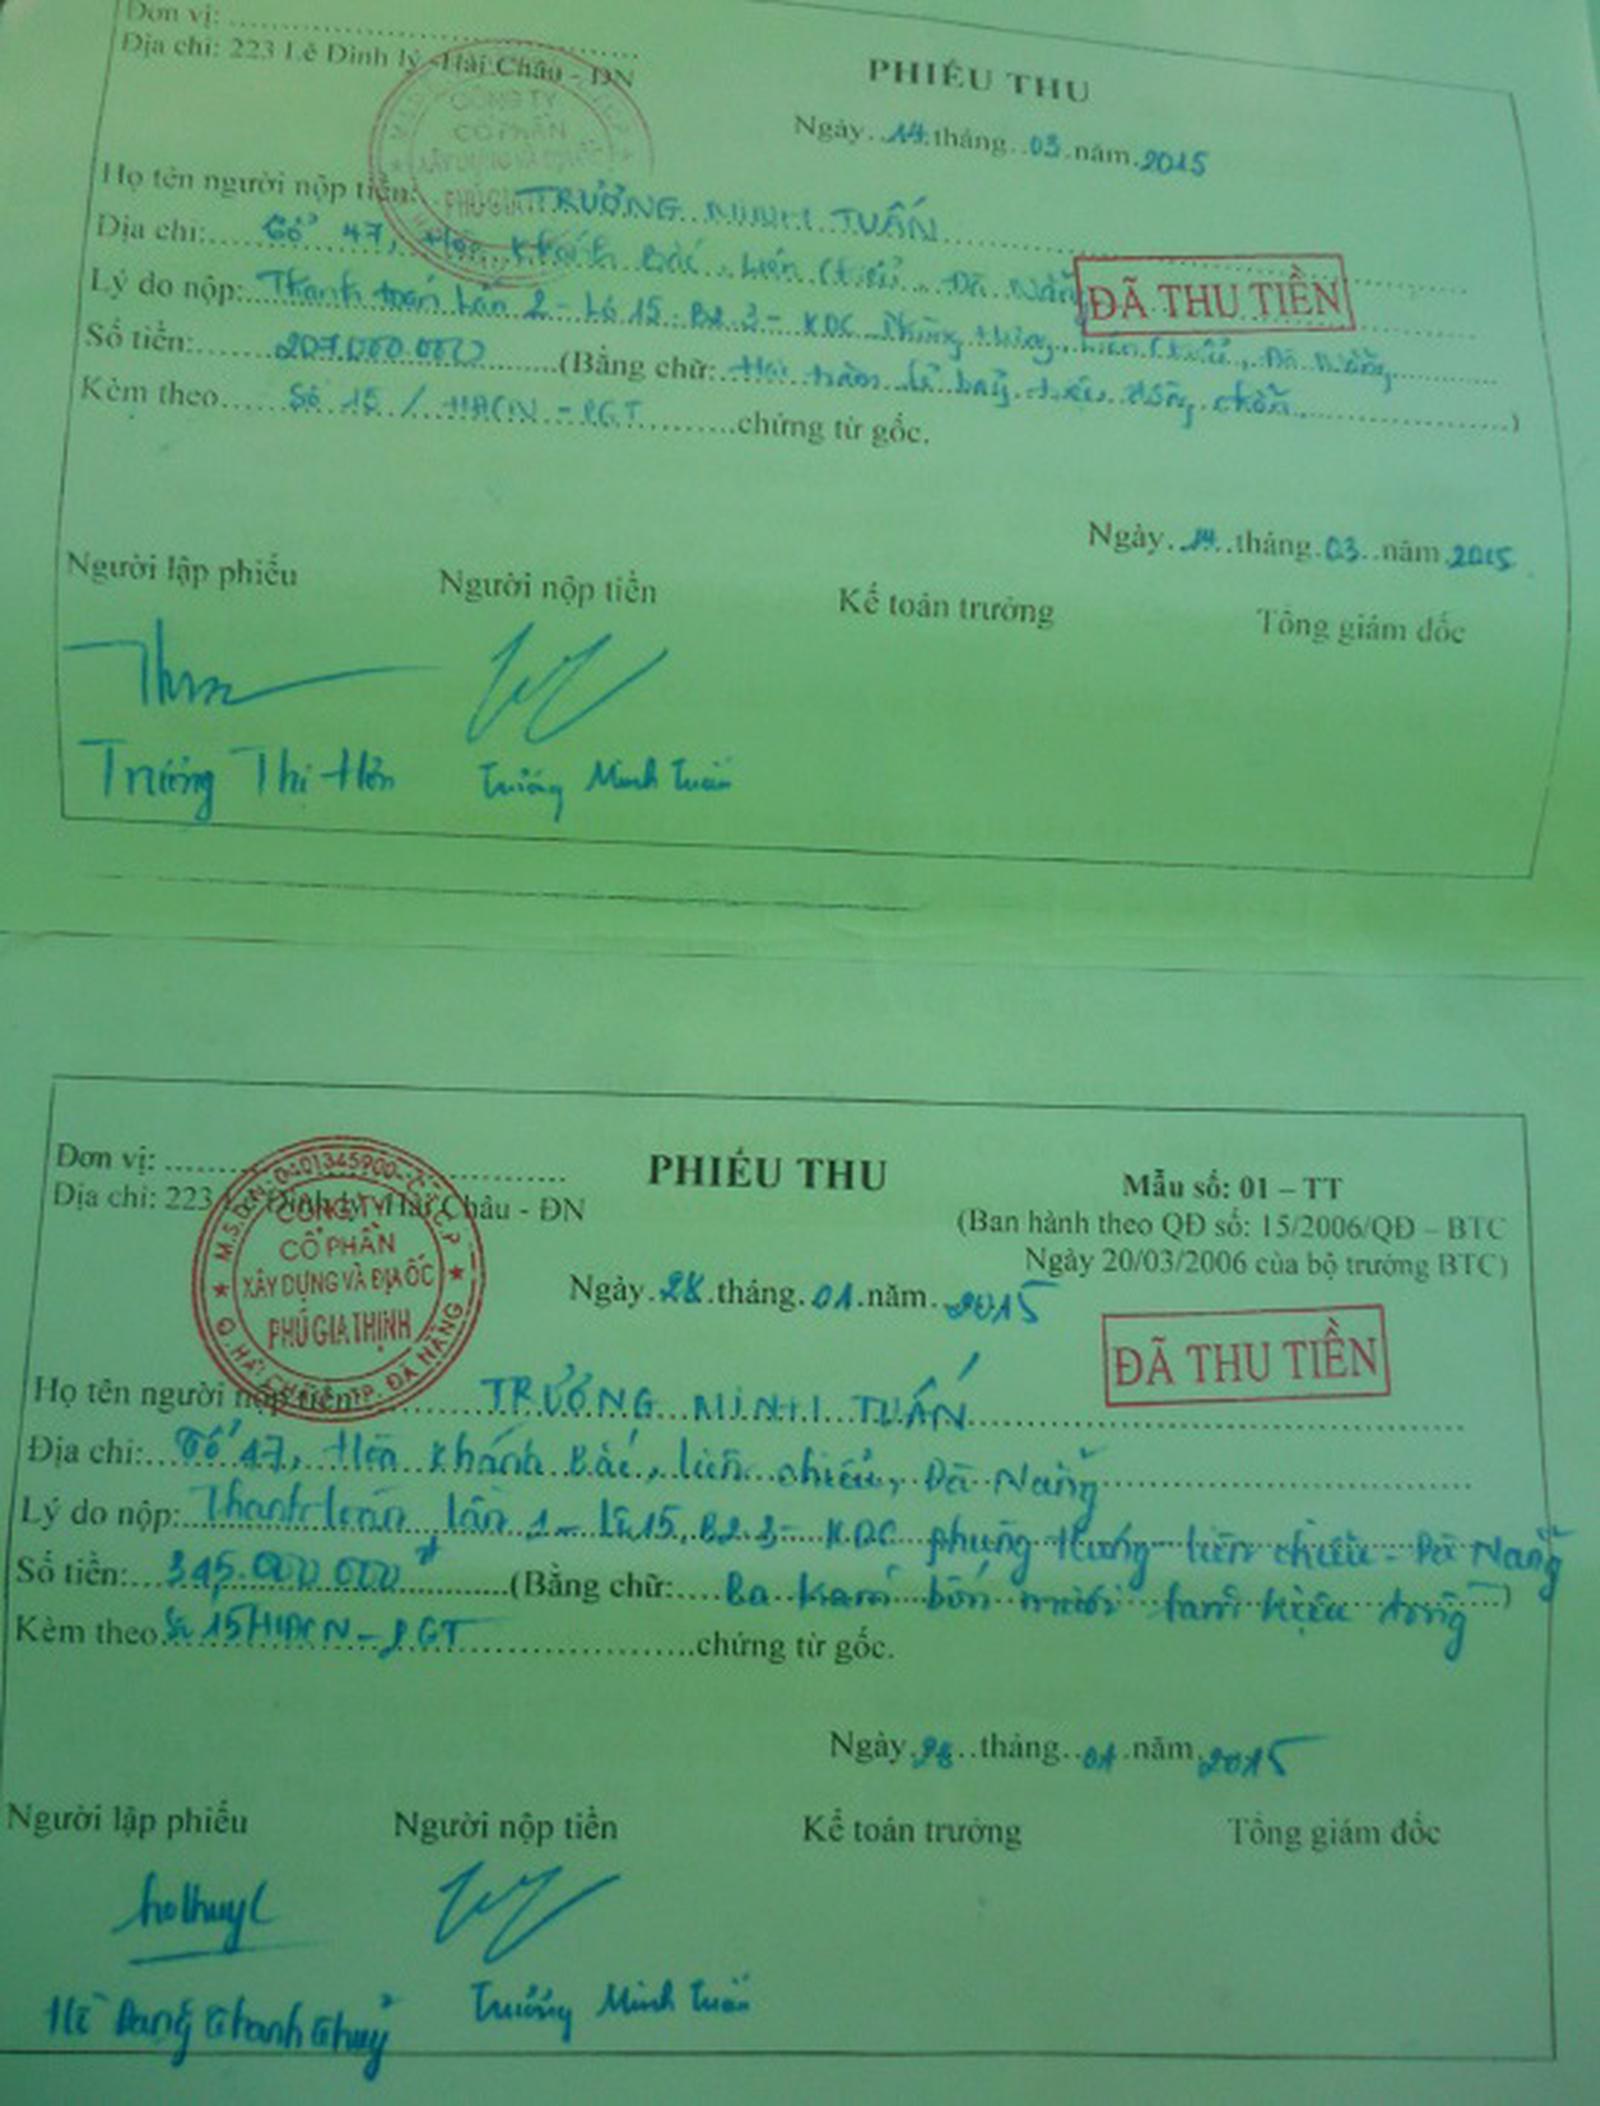 Đơn vị: ........................
Địa chỉ: 223 Lê Đình lý -Hải Châu - ĐN
CÔNG TY
CỔ PHẦN
XÂY DỰNG VÀ ĐỊA ỐC
PHÚ GIA
PHIẾU THU
Ngày..14.tháng..03.năm.2015
Họ tên người nộp tiền: TRƯƠNG MINH TUẤN
Địa chỉ: Tổ 47, Hòa Khánh Bắc, Liên Chiểu, Đà Nẵng
ĐÃ THU TIỀN
Lý do nộp: Thanh toán lần 2 - Lô 15 B2.3 - KDC Phùng Hưng, Liên Chiểu, Đà Nẵng
Số tiền: 207.000.000 (Bằng chữ: Hai trăm lẻ bảy triệu đồng chẵn )
Kèm theo Số 15 / HĐCN - PGT chứng từ gốc.
Ngày..14..tháng.03..năm.2015
Người lập phiếu Người nộp tiền Kế toán trưởng Tổng giám đốc
Trương Thị Trương Minh Tuấn
Đơn vị: ........................
Địa chỉ: 223 Lê Đình lý -Hải Châu - ĐN
M.S.D.N: 0401345900-C.T.C.P
CÔNG TY
CỔ PHẦN
XÂY DỰNG VÀ ĐỊA ỐC
PHÚ GIA THỊNH
Q. HẢI CHÂU - TP. ĐÀ NẴNG
PHIẾU THU
Mẫu số: 01 – TT
(Ban hành theo QĐ số: 15/2006/QĐ – BTC
Ngày 20/03/2006 của bộ trưởng BTC)
Ngày.28.tháng.01.năm.2015
ĐÃ THU TIỀN
Họ tên người nộp tiền TRƯƠNG MINH TUẤN
Địa chỉ: Tổ 47, Hòa Khánh Bắc, Liên chiểu, Đà Nẵng
Lý do nộp: Thanh toán lần 1 - Lô 15, B2.3 - KDC phùng Hưng - Liên chiểu - Đà Nẵng
Số tiền: 345.000.000đ (Bằng chữ: Ba trăm bốn mươi lăm triệu đồng )
Kèm theo Số 15/HĐCN - PGT chứng từ gốc.
Ngày.28..tháng..01.năm.2015
Người lập phiếu Người nộp tiền Kế toán trưởng Tổng giám đốc
Thanh Thuỷ Trương Minh Tuấn